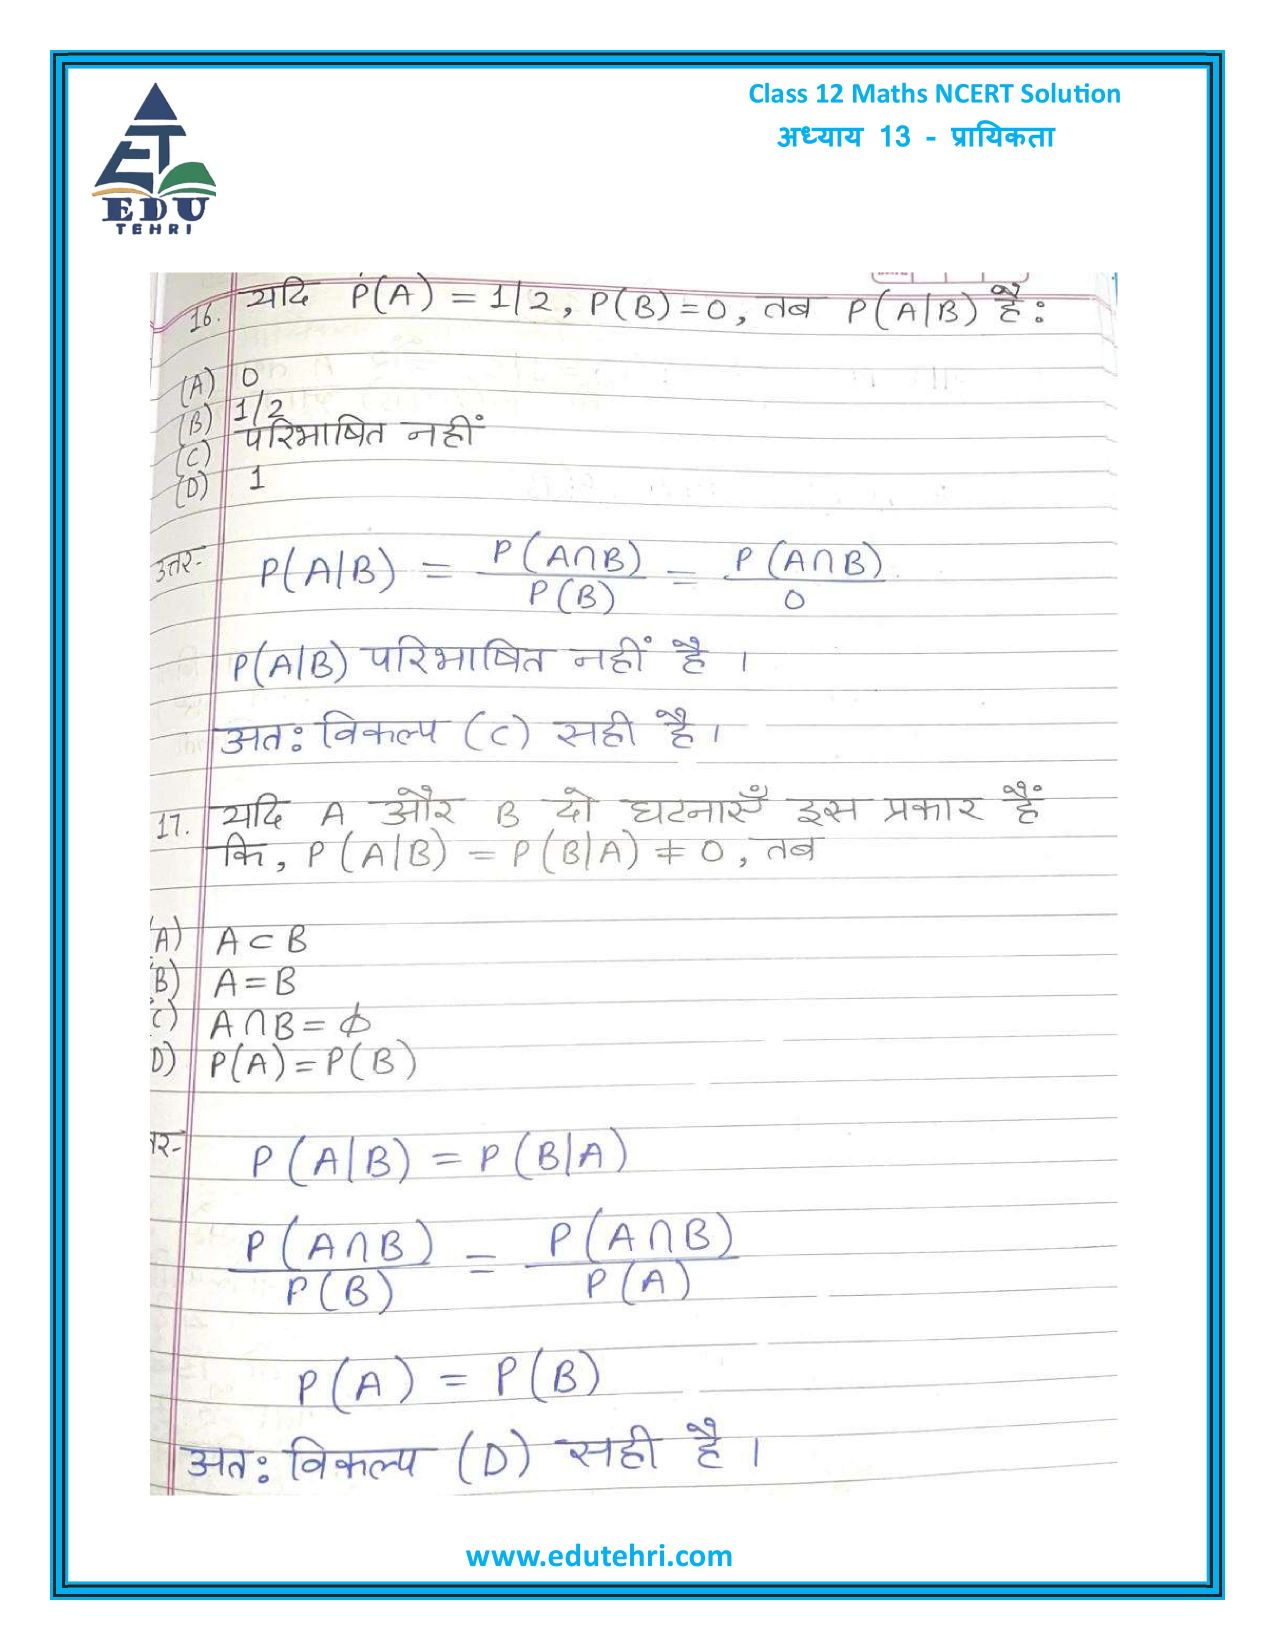 Class 12 Maths NCERT Solution
अध्याय 13 - प्रायिकता
EDU
TEHRI
16. यदि P(A) = 1/2, P(B) = 0, तब P(A|B) है:
(A) 0
(B) 1/2
(C) परिभाषित नहीं
(D) 1
उत्तर- P(A|B) = P(A∩B)/P(B) = P(A∩B)/0
P(A|B) परिभाषित नहीं है।
अतः विकल्प (C) सही है।
17. यदि A और B दो घटनाएँ इस प्रकार हैं
कि, P(A|B) = P(B|A) ≠ 0, तब
(A) A ⊂ B
(B) A = B
(C) A∩B = ϕ
(D) P(A) = P(B)
त्तर- P(A|B) = P(B|A)
P(A∩B)/P(B) = P(A∩B)/P(A)
P(A) = P(B)
अतः विकल्प (D) सही है।
www.edutehri.com